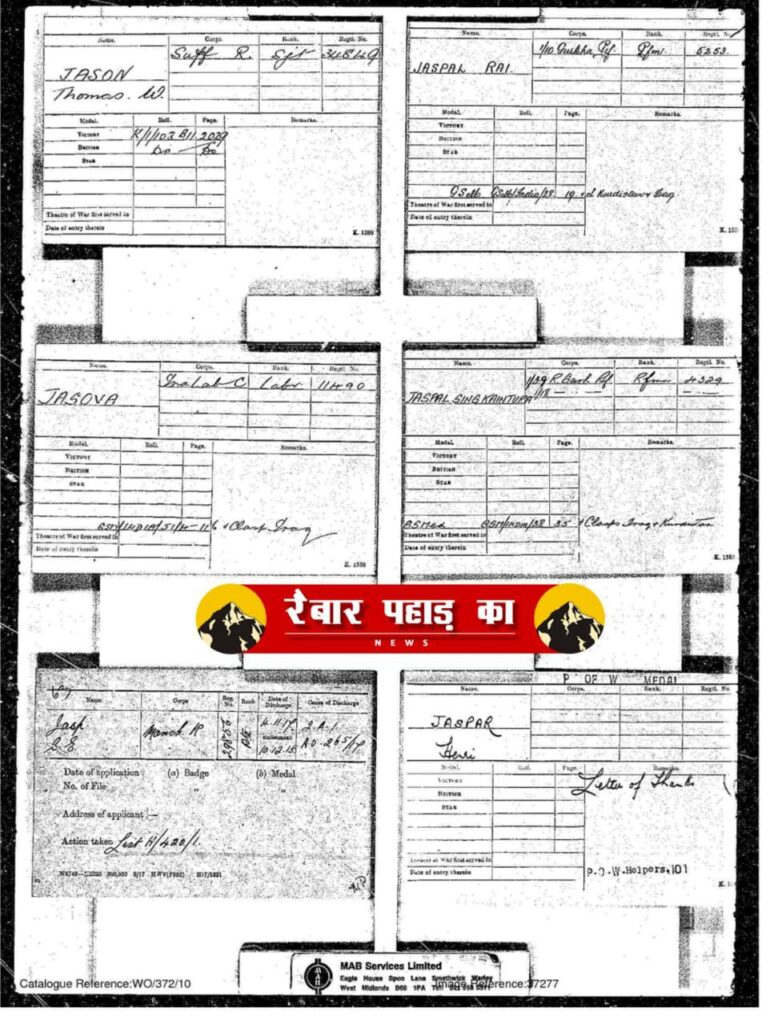 Name. Corps. Rank. Regtl. No.
JASON Suff R. Sjt 34849
Thomas. W.
Medal. Roll. Page. Remarks.
VICTORY K/1/103 B11 2029
BRITISH Do Do
STAR
Theatre of War first served in
Date of entry therein
K. 1380
Name. Corps. Rank. Regtl. No.
JASPAL RAI. 1/10 Gurkha Rif. Rfm. 5353
Medal. Roll. Page. Remarks.
VICTORY
BRITISH
STAR
19 + cl Kurdistan & Iraq
Theatre of War first served in
Date of entry therein
Name. Corps. Rank. Regtl. No.
JASOVA Ind Lab C Labr 11490
Medal. Roll. Page. Remarks.
VICTORY
BRITISH
STAR
+ Clasp Iraq
Theatre of War first served in
Date of entry therein
K. 1380
Name. Corps. Rank. Regtl. No.
JASPAL SING KAINTURA 1/39 R Garh Rif Rfmn 4329
1/18
Medal. Roll. Page. Remarks.
VICTORY
BRITISH
STAR
GSM/INDIA/38 35 + Clasps Iraq & Kurdistan
Theatre of War first served in
Date of entry therein
K. 1380
रैबार पहाड़ का
NEWS
Name Corps Reg. No. Rank Date of Discharge Cause of Discharge
Jasp Manch R 4.11.17
G. E. Enlistment
Date of application (a) Badge (b) Medal
No. of File " "
Address of applicant :—
Action taken List H/420/1.
P OF W MEDAL
Name. Corps. Rank. Regtl. No.
JASPAR
Henri
Medal. Roll. Page. Remarks.
VICTORY Letter of Thanks
BRITISH
STAR
Theatre of War first served in
Date of entry therein
P.O.W. Helpers, 101
MAB Services Limited
Eagle House Spon Lane Smethwick Warley
West Midlands B66 1PA
Catalogue Reference:WO/372/10
Image Reference:37277